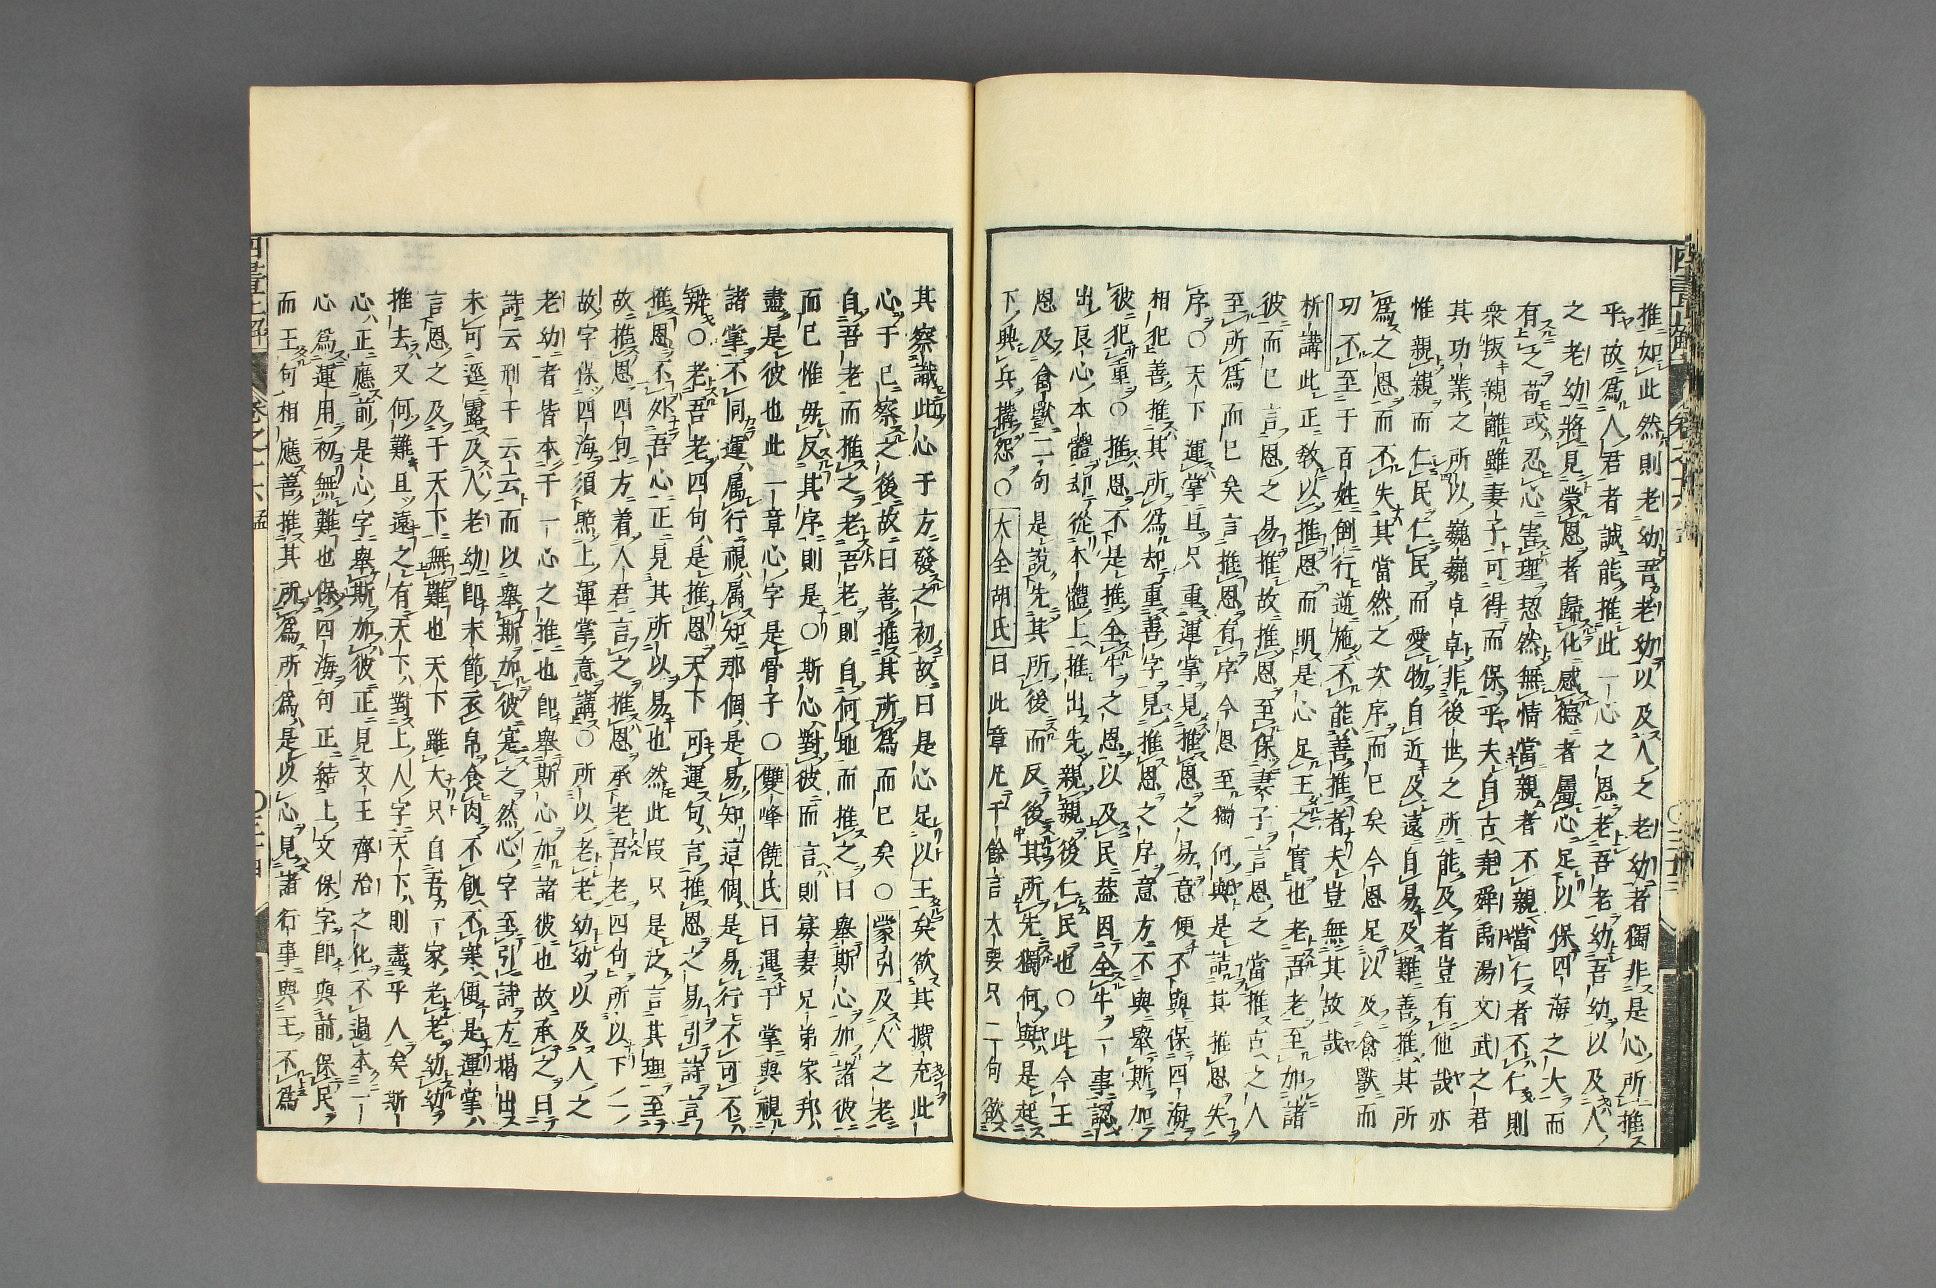 推如此然則老幼吾老幼以及人之老幼者獨非是心所推
乎故爲人君者誠能推此一心之恩老吾老幼吾幼以及人
之老幼將見蒙恩者歸化感德者屬心足以保四海之大而
有之苟或忍心害理恝然無情當親者不親當仁者不仁則
衆叛親離雖妻子可得而保乎夫自古堯舜禹湯文武之君
其功業之所以巍巍卓卓非後世之所能及者豈有他哉亦
惟親親而仁民仁民而愛物自近及遠自易及難善推其所
爲之恩而不失其當然之次序而已矣今恩足以及禽獸而
功不至于百姓倒行逆施不能善推者夫豈無其故哉
析講此正敎以推恩而明是心足王之實也老吾老至加諸
彼而已言恩之易推故推恩至保妻子言恩之當推古之人
至所爲而已矣言推恩有序今恩至獨何與是詰其推恩失
序○天下運掌且只重運掌見推恩之易意便不與保四海
相犯善推其所爲却重善字見推恩之序意方不與舉斯加
彼犯重○推恩不是推全牛之恩以及民蓋因全牛一事認
出良心本體却從本體上推出先親親後仁民也○此今王
恩及禽獸二句是說先其所後而反後其所先獨何與是起
下興兵搆怨○大全胡氏曰此章凡千餘言大要只二句欲
其察識此心于方發之初故曰是心足以王矣欲其擴充此
心于已察之後故曰善推其所爲而已矣○蒙引及人之老
自吾老而推之老吾老則自何地而推之曰舉斯心加諸彼
而已惟毋反其序則是○斯心對彼而言則寡妻兄弟家邦
盡是彼也此一章心字是骨子○雙峰饒氏曰運于掌與視
諸掌不同運屬行視屬知那個是易知這個是易行不可不
辨○老吾老四句是推恩天下可運句言推恩之易引詩言
推恩不外吾心正見其所以易也然此段只是泛言其理至
故推恩四句方着人君言之推恩承老吾老四句所以下一
故字保四海須照上運掌意講○所以老老幼幼以及人之
老幼者皆本于一心之推也卽舉斯心加諸彼也故承之曰
詩云刑于云云而以舉斯加彼寔之然心字至引詩方揭出
未可逕露及人老幼卽末節衣帛食肉不飢不寒便是運掌
言恩之及于天下無難也天下雖大只自吾一家老老幼幼
推去又何難且遠之有天下對上人字天下則盡乎人矣斯
心正應前是心字舉斯加彼正見文王齊治之化不過本一
心爲運用初無難也保四海句正結上文保字卽與前保民
而王句相應善推其所爲所爲是以心見諸行事與王不爲